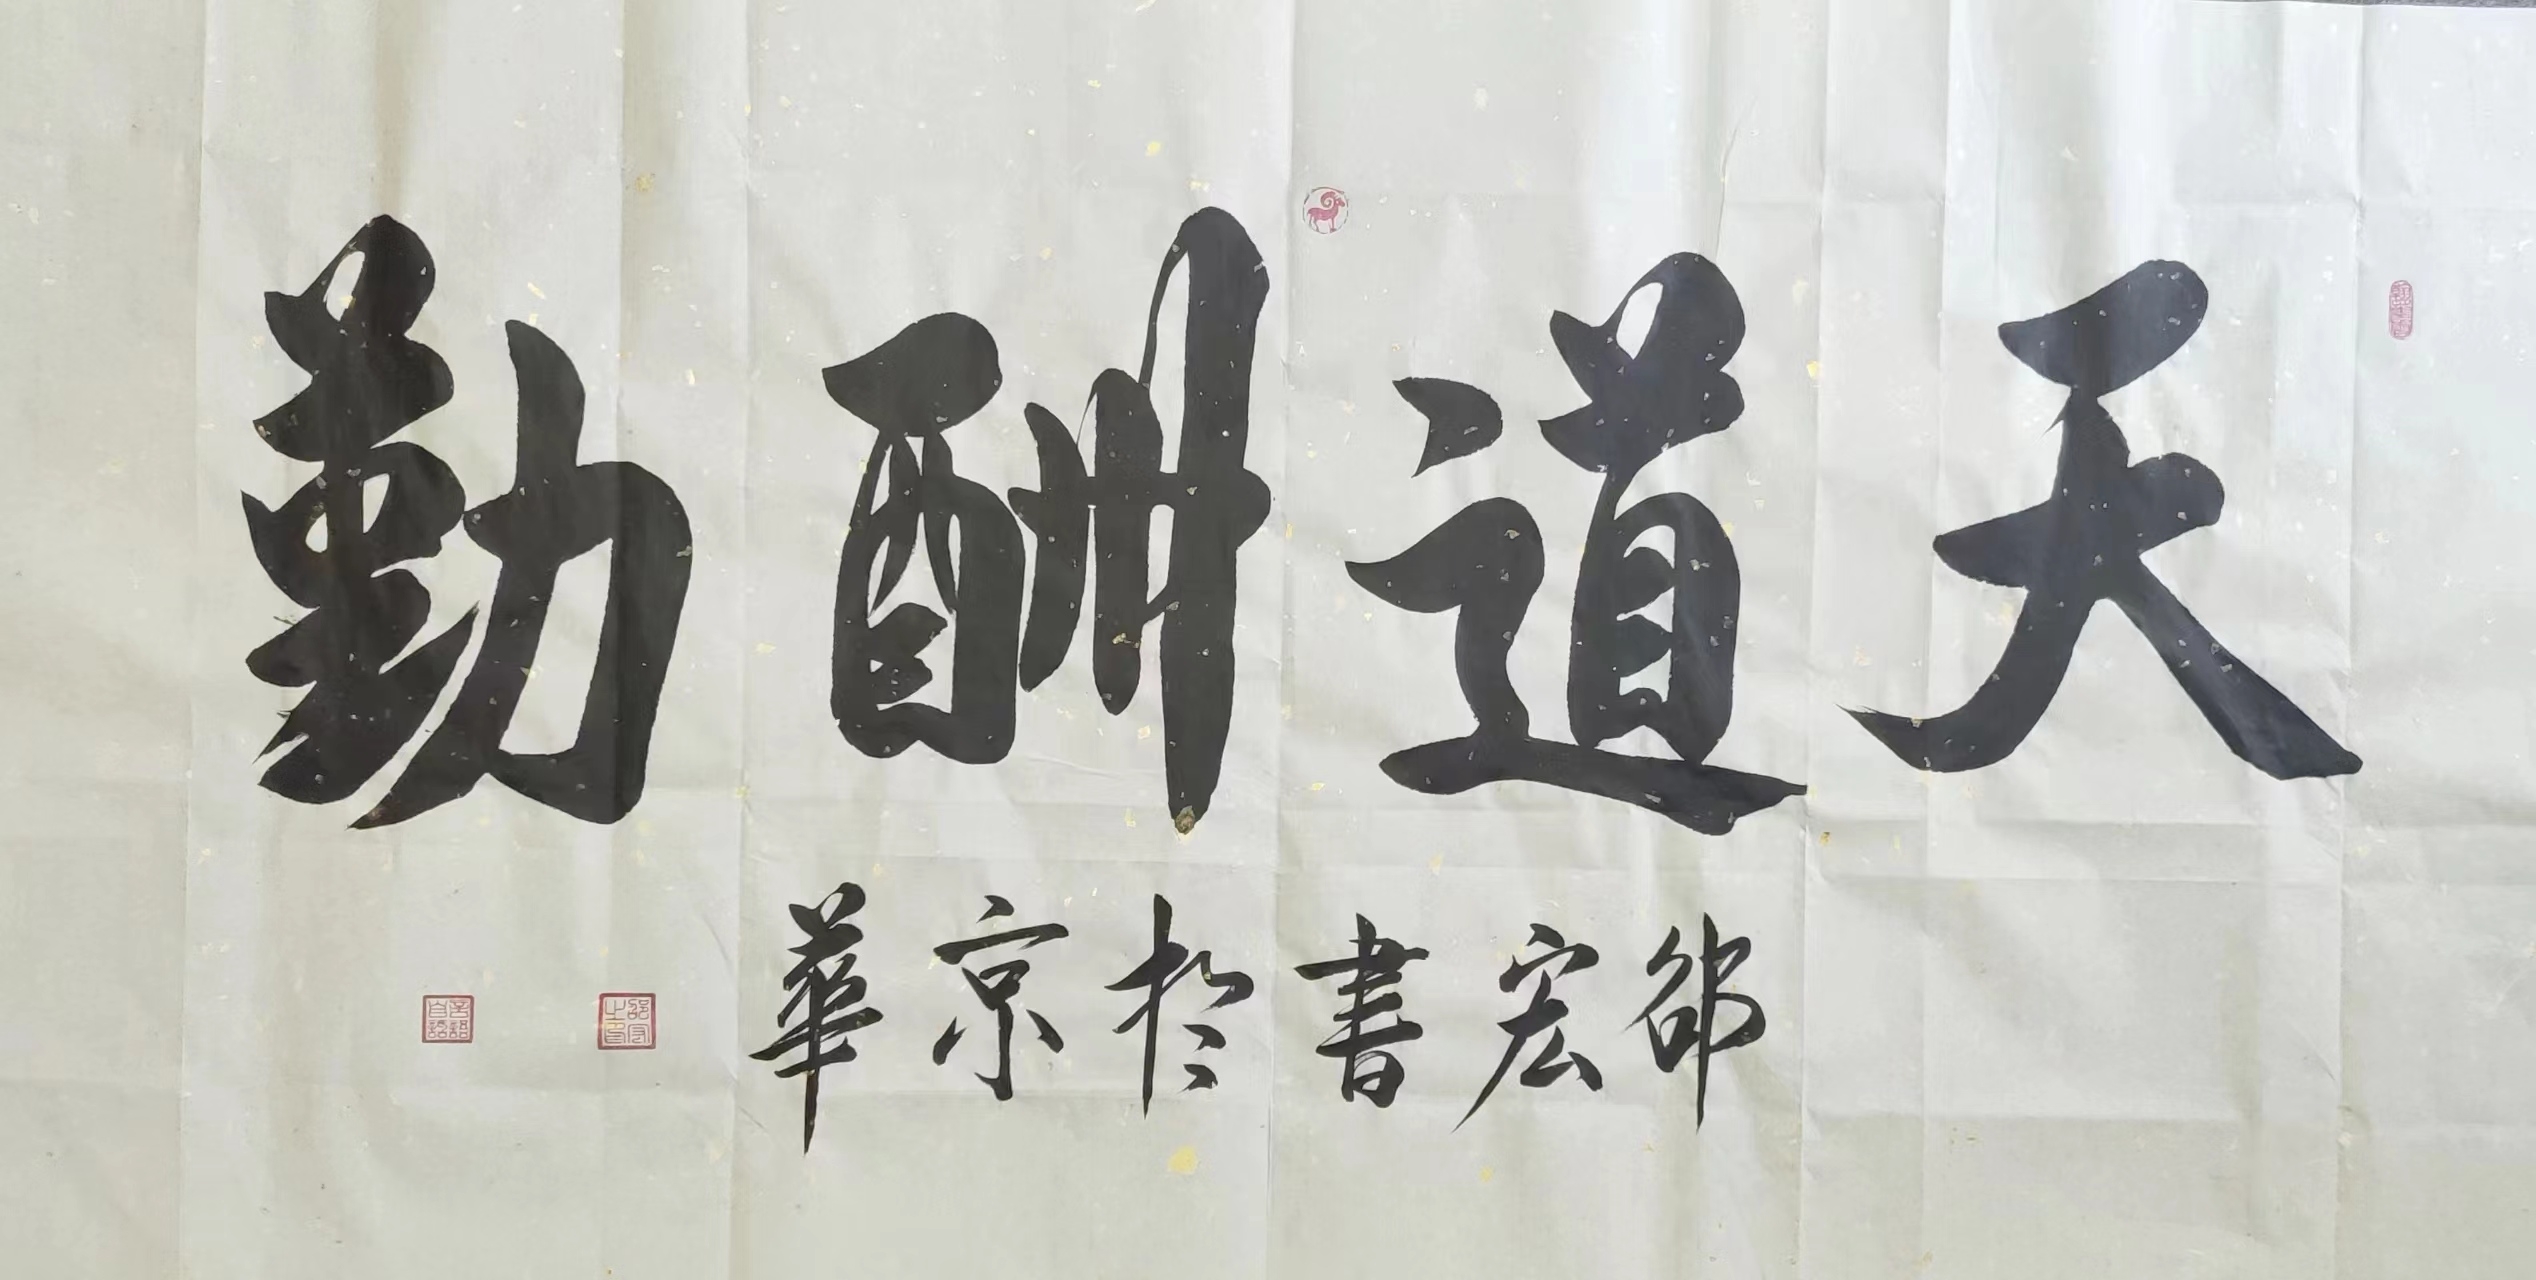 天道酬勤
邵宏書於京華